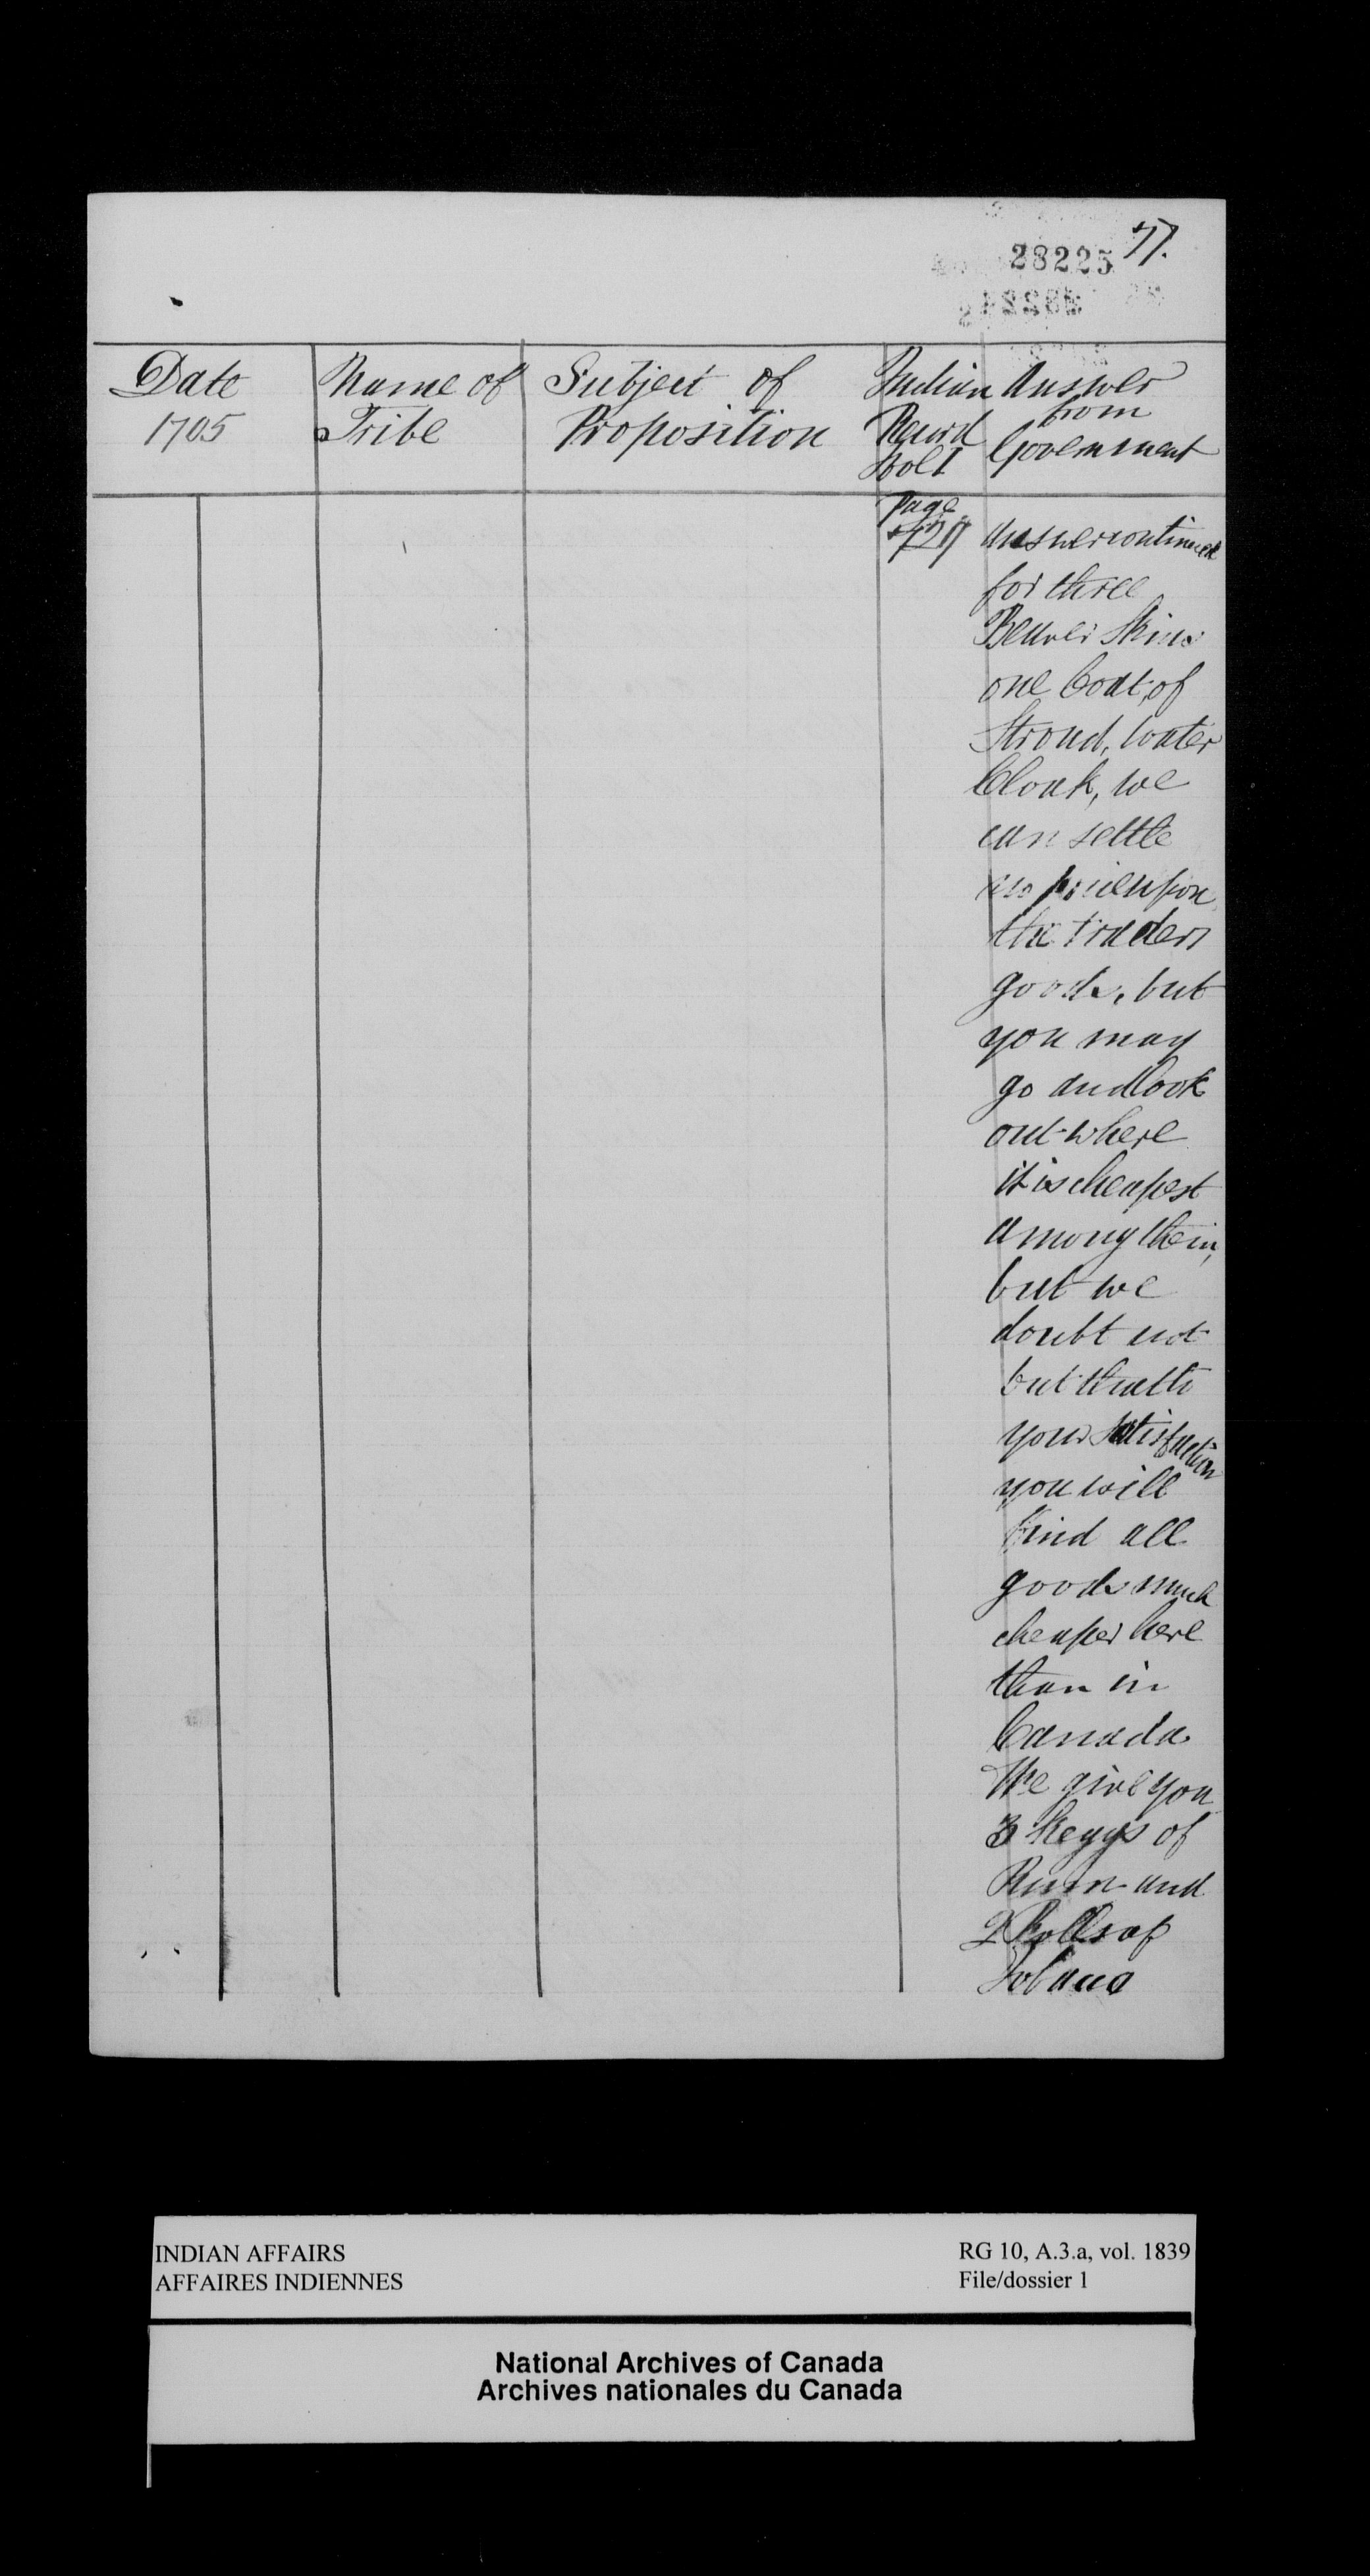 28225 77.
Date
1705
Name of
Tribe
Subject of
Proposition
Indian
Record
Vol 1
Answer
from
Government
Page
Answer continued
for three
Beaver Skins
one Coat of
Stroud, water
Cloak, we
can settle
no price upon
the traders
goods, but
you may
go and look
out where
it is cheapest
among them,
but we
doubt not
but that to
your satisfaction
you will
find all
goods much
cheaper here
than in
Canada
We give you
3 Keggs of
Rum and
2 Rolls of
Tobacco
INDIAN AFFAIRS
AFFAIRES INDIENNES
RG 10, A.3.a, vol. 1839
File/dossier 1
National Archives of Canada
Archives nationales du Canada